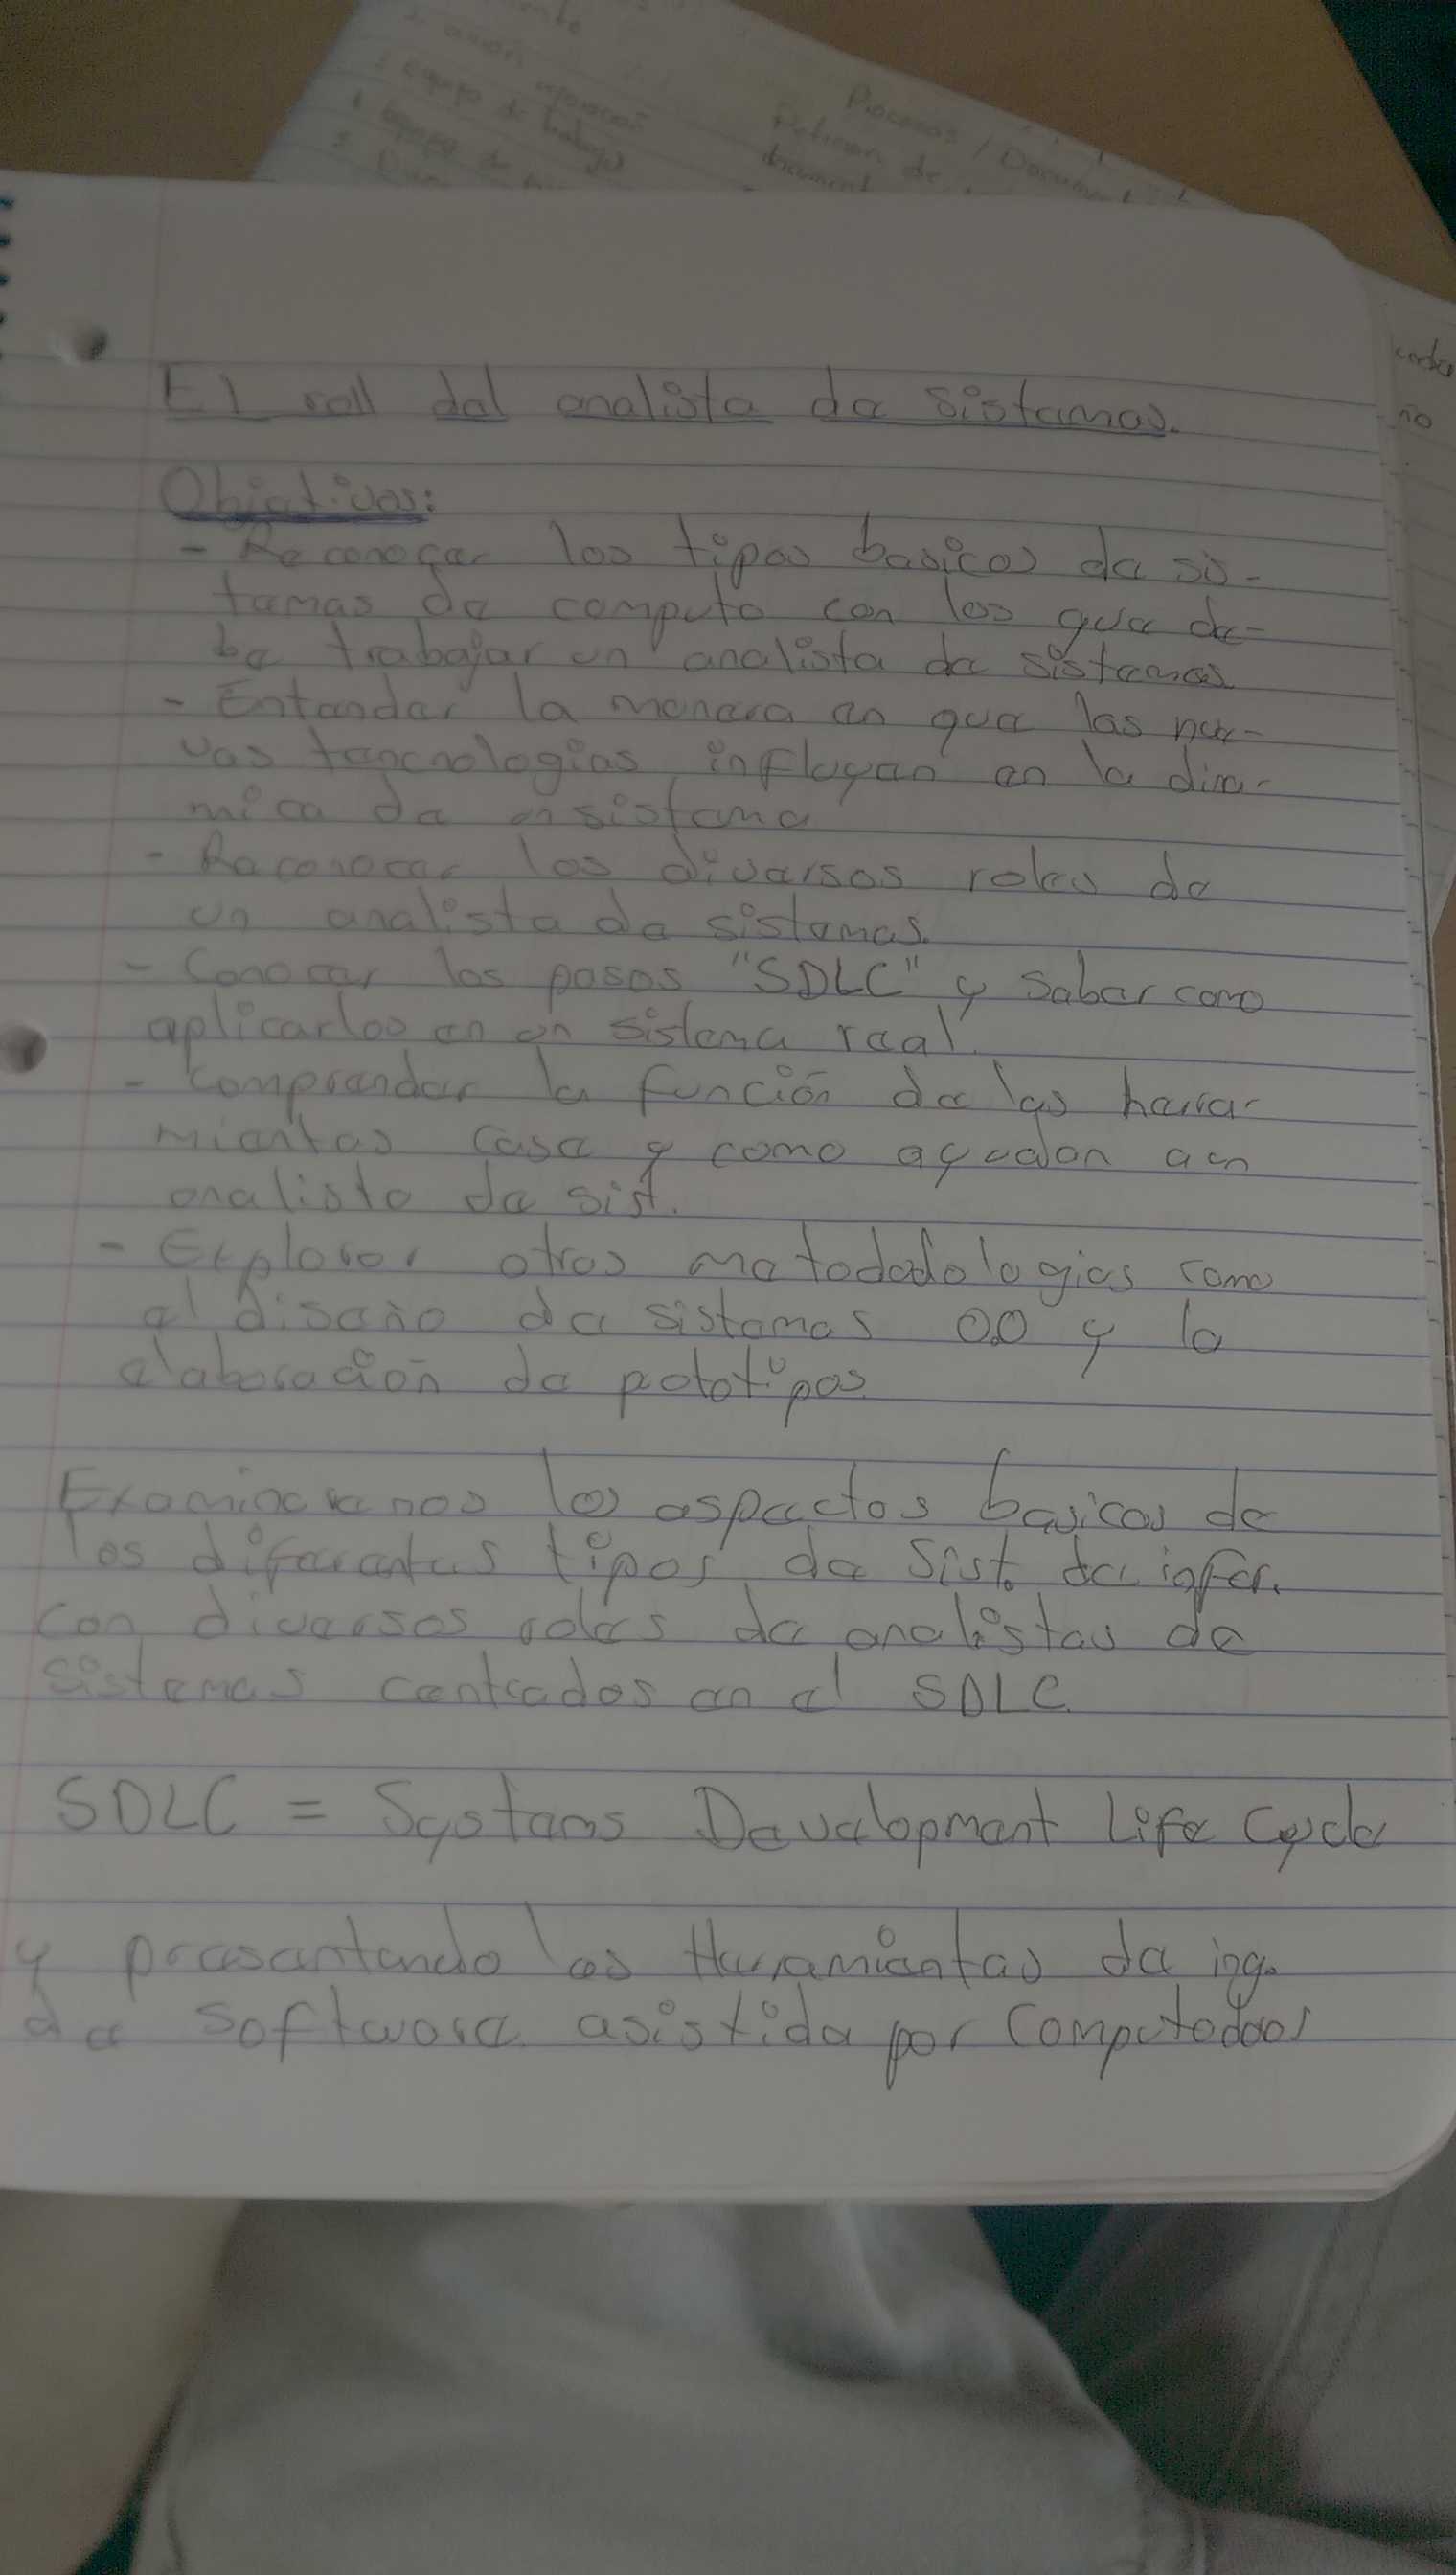 ento
equipo de trabajo
Procesos / Document
El roll del analista de sistemas.
Objetivos:
- Reconocer los tipos basicos de sis-
temas de computo con los que de-
be trabajar un analista de sistemas
- Entender la menera en que las nue-
vas tencnologias influyen en la diná-
mica de un sistema
- Reconocer los diversos roles de
un analista de sistemas.
- Conocer los pasos "SDLC" y saber como
aplicarlos en un sistema real.
- Comprender la función de las herra-
mientas case y como ayudan a un
analista de sist.
- Explorar otras metododologias como
el diseño de sistemas O.O y la
elaboración de pototipos
Examineremos los aspectos basicos de
los diferentes tipos de sist. de infor.
con diversos roles de analistas de
sistemas centrados en el SDLC
SDLC = Systems Development Life Cycle
y presentando las Herramientas de ing.
de software asistida por Computador